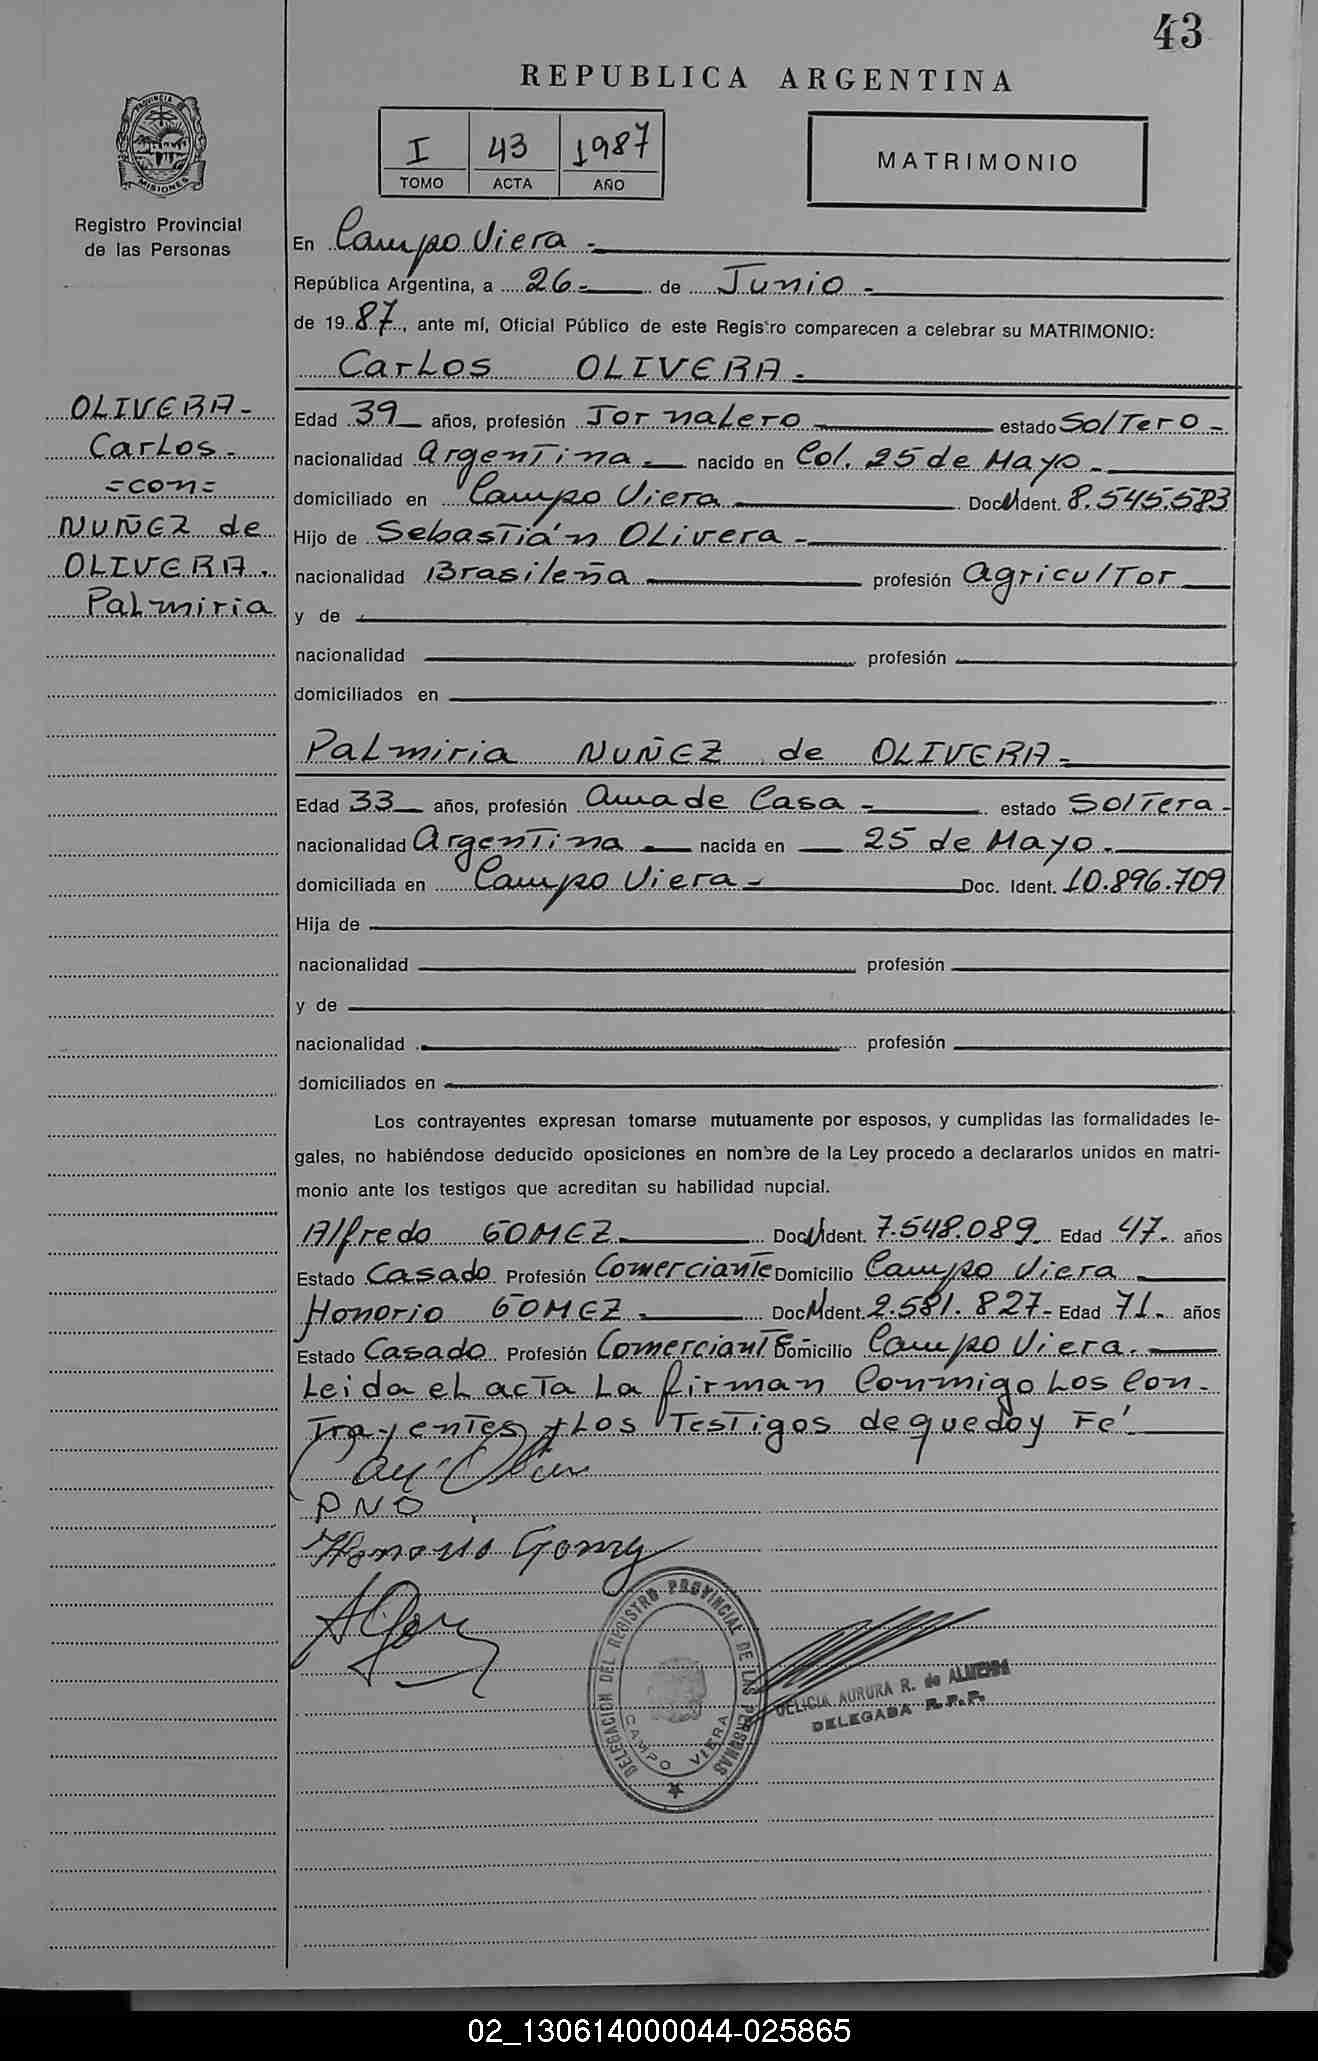 43
REPUBLICA ARGENTINA
PROVINCIA DE
MISIONES
I 43 1987
TOMO ACTA AÑO
MATRIMONIO
Registro Provincial
de las Personas
En Campo Viera -
República Argentina, a 26- de Junio -
de 1987, ante mí, Oficial Público de este Registro comparecen a celebrar su MATRIMONIO:
Carlos OLIVERA -
OLIVERA-
Carlos-
=con=
NUÑEZ de
OLIVERA.
Palmiria
Edad 39 años, profesión Jornalero estado Soltero -
nacionalidad Argentina - nacido en Col. 25 de Mayo -
domiciliado en Campo Viera Doc. Ident. 8.545.583
Hijo de Sebastián Olivera -
nacionalidad Brasileña profesión Agricultor
y de
nacionalidad profesión
domiciliados en
Palmiria NUÑEZ de OLIVERA -
Edad 33 años, profesión Ama de Casa - estado Soltera -
nacionalidad Argentina - nacida en 25 de Mayo -
domiciliada en Campo Viera - Doc. Ident. 10.896.709
Hija de
nacionalidad profesión
y de
nacionalidad profesión
domiciliados en
Los contrayentes expresan tomarse mutuamente por esposos, y cumplidas las formalidades le-
gales, no habiéndose deducido oposiciones en nombre de la Ley procedo a declararlos unidos en matri-
monio ante los testigos que acreditan su habilidad nupcial.
Alfredo GOMEZ Doc. Ident. 7.548.089 Edad 47- años
Estado Casado Profesión Comerciante Domicilio Campo Viera
Honorio GOMEZ - Doc. Ident. 2.581.827- Edad 71- años
Estado Casado Profesión Comerciante Domicilio Campo Viera.
Leida el acta la firman Conmigo los Con-
trayentes y los Testigos de que doy Fé
PNO
Honorio Gomez
DELEGACION DEL REGISTRO PROVINCIAL DE LAS PERSONAS
CAMPO VIERA
DELICIA AURORA R. de ALMEIDA
DELEGADA R.P.P.
02_130614000044-025865